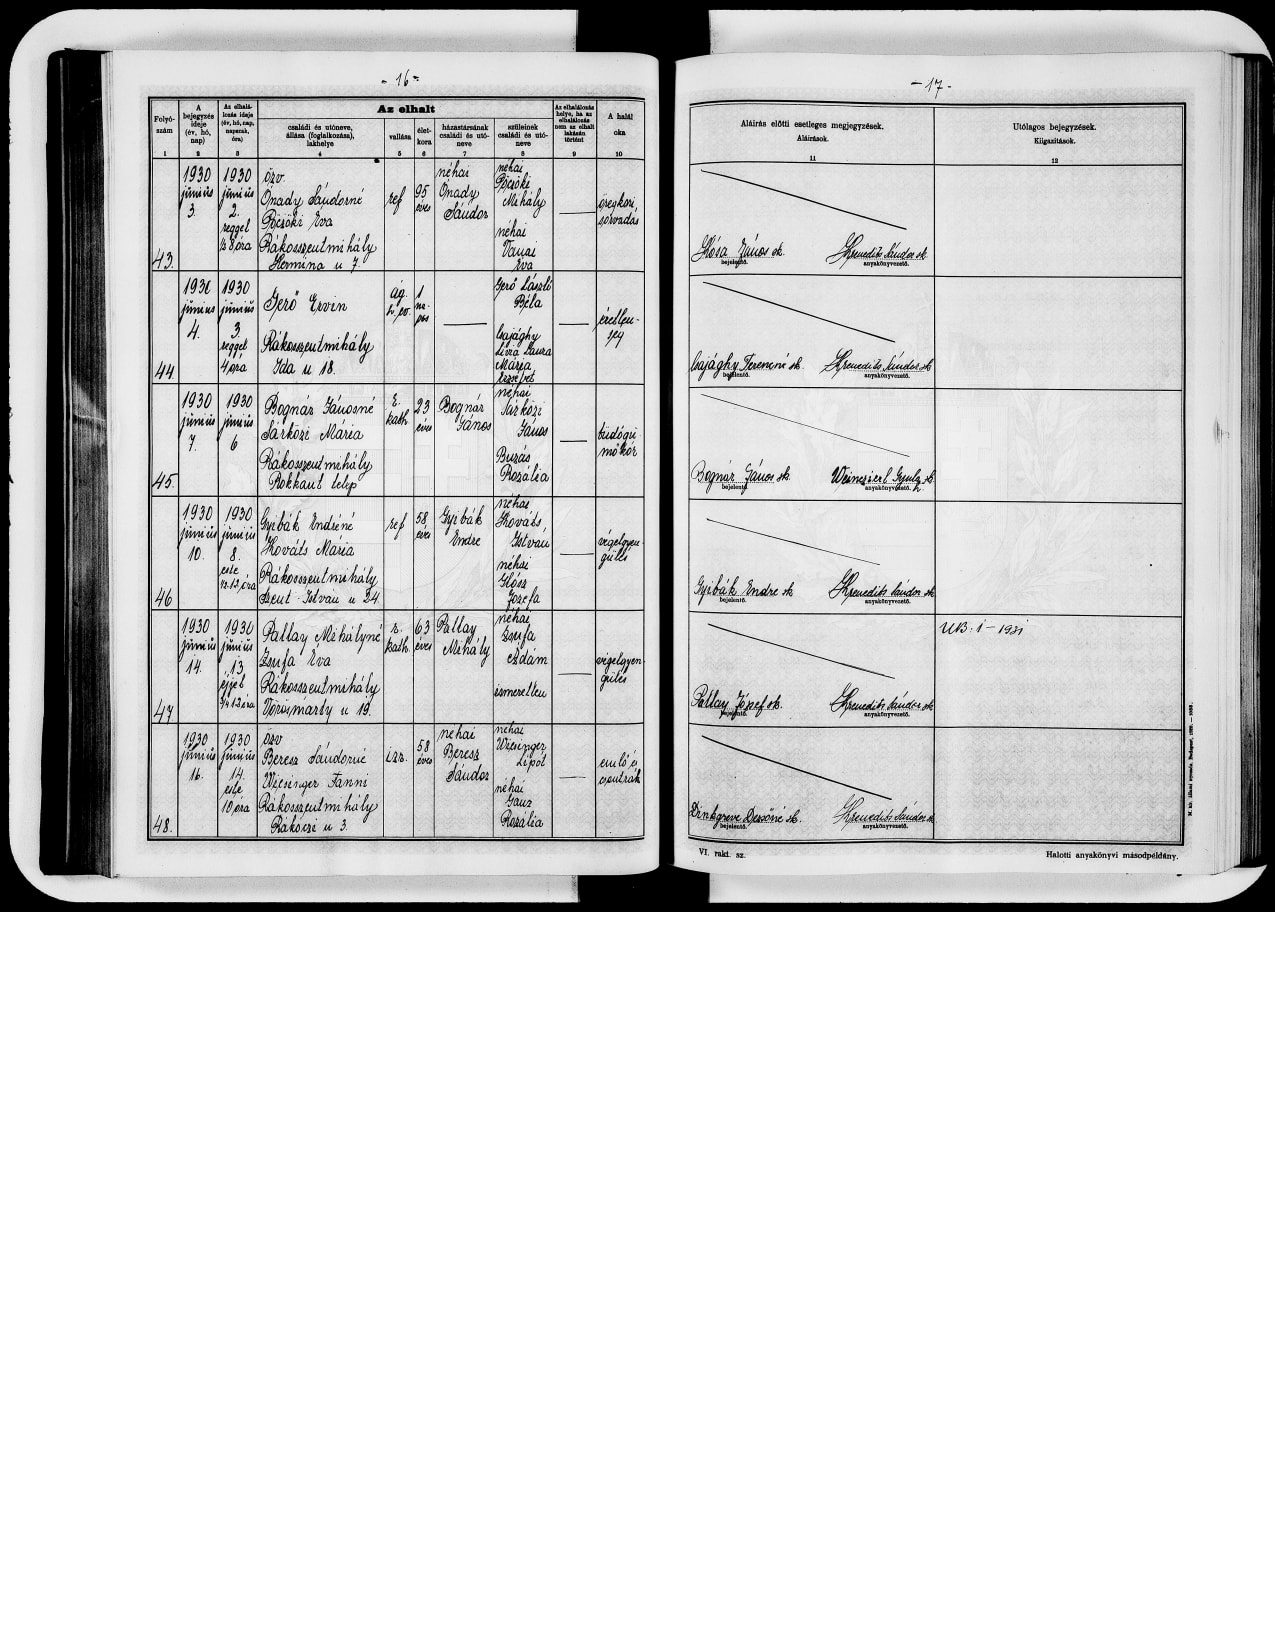 - 16 -
Az elhalt
Folyó-
szám
A
bejegyzés
ideje
(év, hó,
nap)
Az elhalá-
lozás ideje
(év, hó, nap,
napszak,
óra)
családi és utóneve,
állása (foglalkozása),
lakhelye
vallása
élet-
kora
házastársának
családi és utó-
neve
szüleinek
családi és utó-
neve
Az elhalálozás
helye, ha az
elhalálozás
nem az elhalt
lakásán
történt
A halál
oka
1 2 3 4 5 6 7 8 9 10
43.
1930
június
3.
1930
június
2.
reggel
½8 óra
özv.
Ónady Sándorné
Böcsöki Éva
Rákosszentmihály
Hermina u 7.
ref
95
éves
néhai
Ónady
Sándor
néhai
Böcsöki
Mihály
néhai
Éva
öregkori
sorvadás
44.
1930
június
4.
1930
június
3
reggel
4 óra
Gerő Ervin
Rákosszentmihály
Ida u 18.
ág.
h. ev.
1
na-
pos
Gerő László
Béla
Csajághy
Livia Laura
Mária
Erzsébet
éretlen-
ség
45.
1930
június
7.
1930
június
6
Bognár Jánosné
Sárközi Mária
Rákosszentmihály
Rokkant telep
r.
kath
23
éves
Bognár
János
néhai
Sárközi
János
Buzás
Rozália
tüdőgü-
mőkór
46
1930
június
10.
1930
június
8.
este
½12 óra
Gyibák Endréné
Kováts Mária
Rákosszentmihály
Szent István u 24
ref
58
éves
Gyibák
Endre
néhai
Kováts
István
néhai
Jozefa
végelgyen-
gülés
47
1930
június
14.
1930
június
13
éjjel
¾12 óra
Pallay Mihályné
Zsufa Éva
Rákosszentmihály
Vörösmarty u 19.
r.
kath.
63
éves
Pallay
Mihály
néhai
Zsufa
Ádám
ismeretlen
végelgyen-
gülés
48.
1930
június
16.
1930
június
14.
este
10 óra
özv
Beresz Sándorné
Wiesinger Fanni
Rákosszentmihály
Rákóczi u 3.
izr.
58
éves
néhai
Beresz
Sándor
néhai
Wiesinger
Lipót
néhai
Ganz
Rozália
emlő és
csontrák
- 17 -
Aláirás előtti esetleges megjegyzések.
Aláirások.
11
Utólagos bejegyzések.
Kiigazitások.
12
Kósa János sk. Krenedits Sándor sk
bejelentő. anyakönyvvezető.
Csajághy Ferencné sk. Krenedits Sándor sk
bejelentő. anyakönyvvezető.
Bognár János sk. Weinzierl Gyula sk.
bejelentő. anyakönyvvezető.
Gyibák Endre sk Krenedits Sándor sk
bejelentő. anyakönyvvezető.
1931
Pallay József sk. Krenedits Sándor sk
bejelentő. anyakönyvvezető.
Dezsőné sk. Krenedits Sándor sk
bejelentő. anyakönyvvezető.
VI. rakt. sz.
Halotti anyakönyvi másodpéldány.